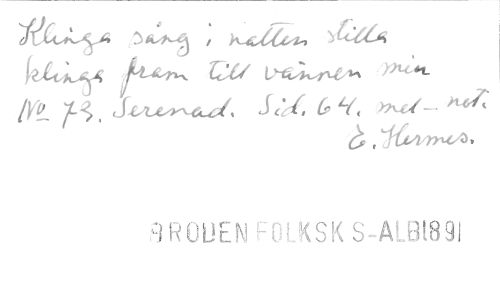 Klinga sång i natten stilla
klinga fram till vännen min
No 73. Serenad. Sid. 64. mel- not.
E. Hermes.
BRODEN FOLKSK S-ALB1891